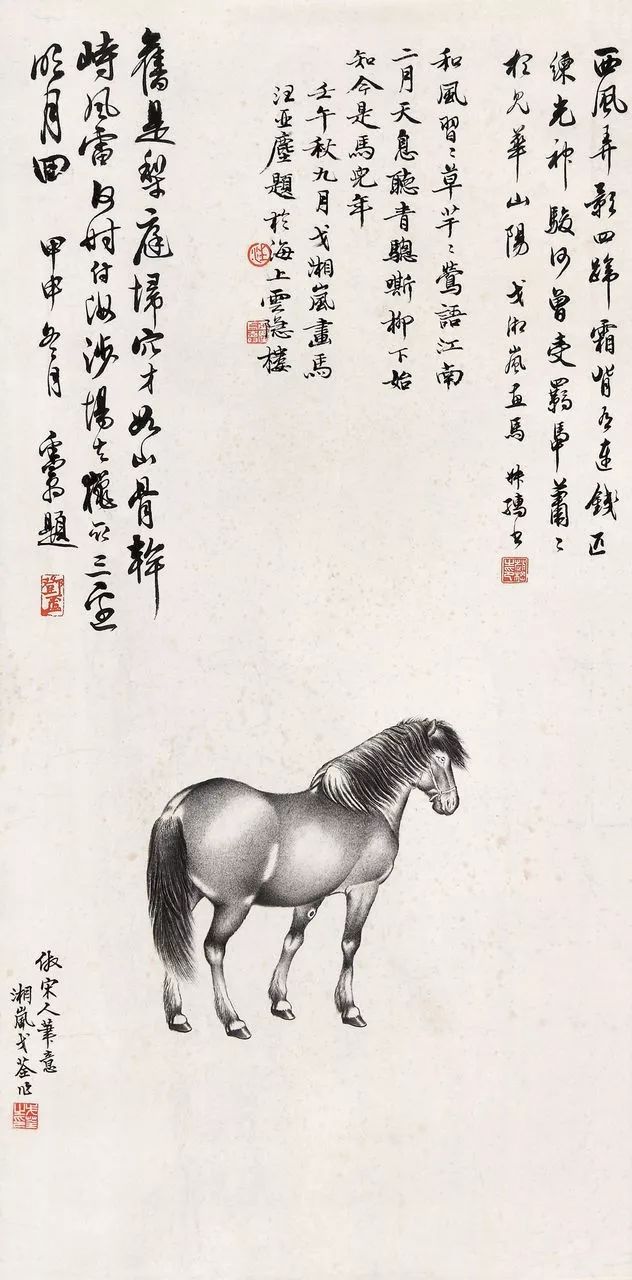 西風弄影四蹄霜背有連錢匹
練光神駿何曾受羈蕭〻
華山陽 戈湘嵐画馬 書
和風習〻草芊〻鶯語江南
二月天息聽青驄嘶柳下始
知今是馬兒年
壬午秋九月戈湘嵐畫馬
汪亞塵題於海上雲隱樓
舊是犂庭埽穴才如山骨幹
峙風雷何時付汝沙場去取三邊
明月回 甲申冬月 糞翁題
倣宋人筆意
湘嵐戈荃作